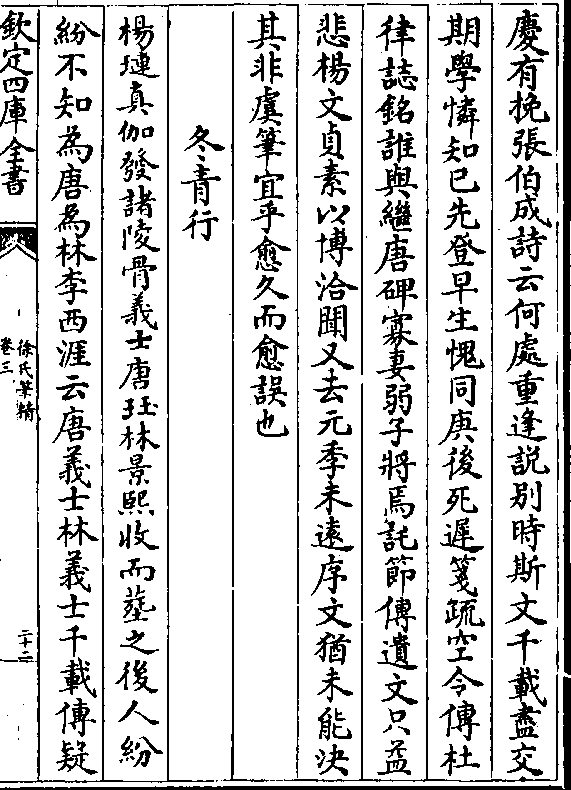 慶有挽張伯成詩云何處重逢説别時斯文千載盡交
期學憐知已先登早生愧同庚後死遲箋疏空令傳杜
律誌銘誰與繼唐碑寡妻弱子將焉託節傳遺文只益
悲楊文貞素以博洽聞又去元季未遠序文猶未能決
其非虞筆宜乎愈久而愈誤也
冬青行
楊璉真伽發諸陵骨義士唐珏林景熙收而𦵏之後人紛
紛不知為唐為林李西涯云唐義士林義士千載傳疑
欽定四庫全書
徐氏筆精
卷三
二十二